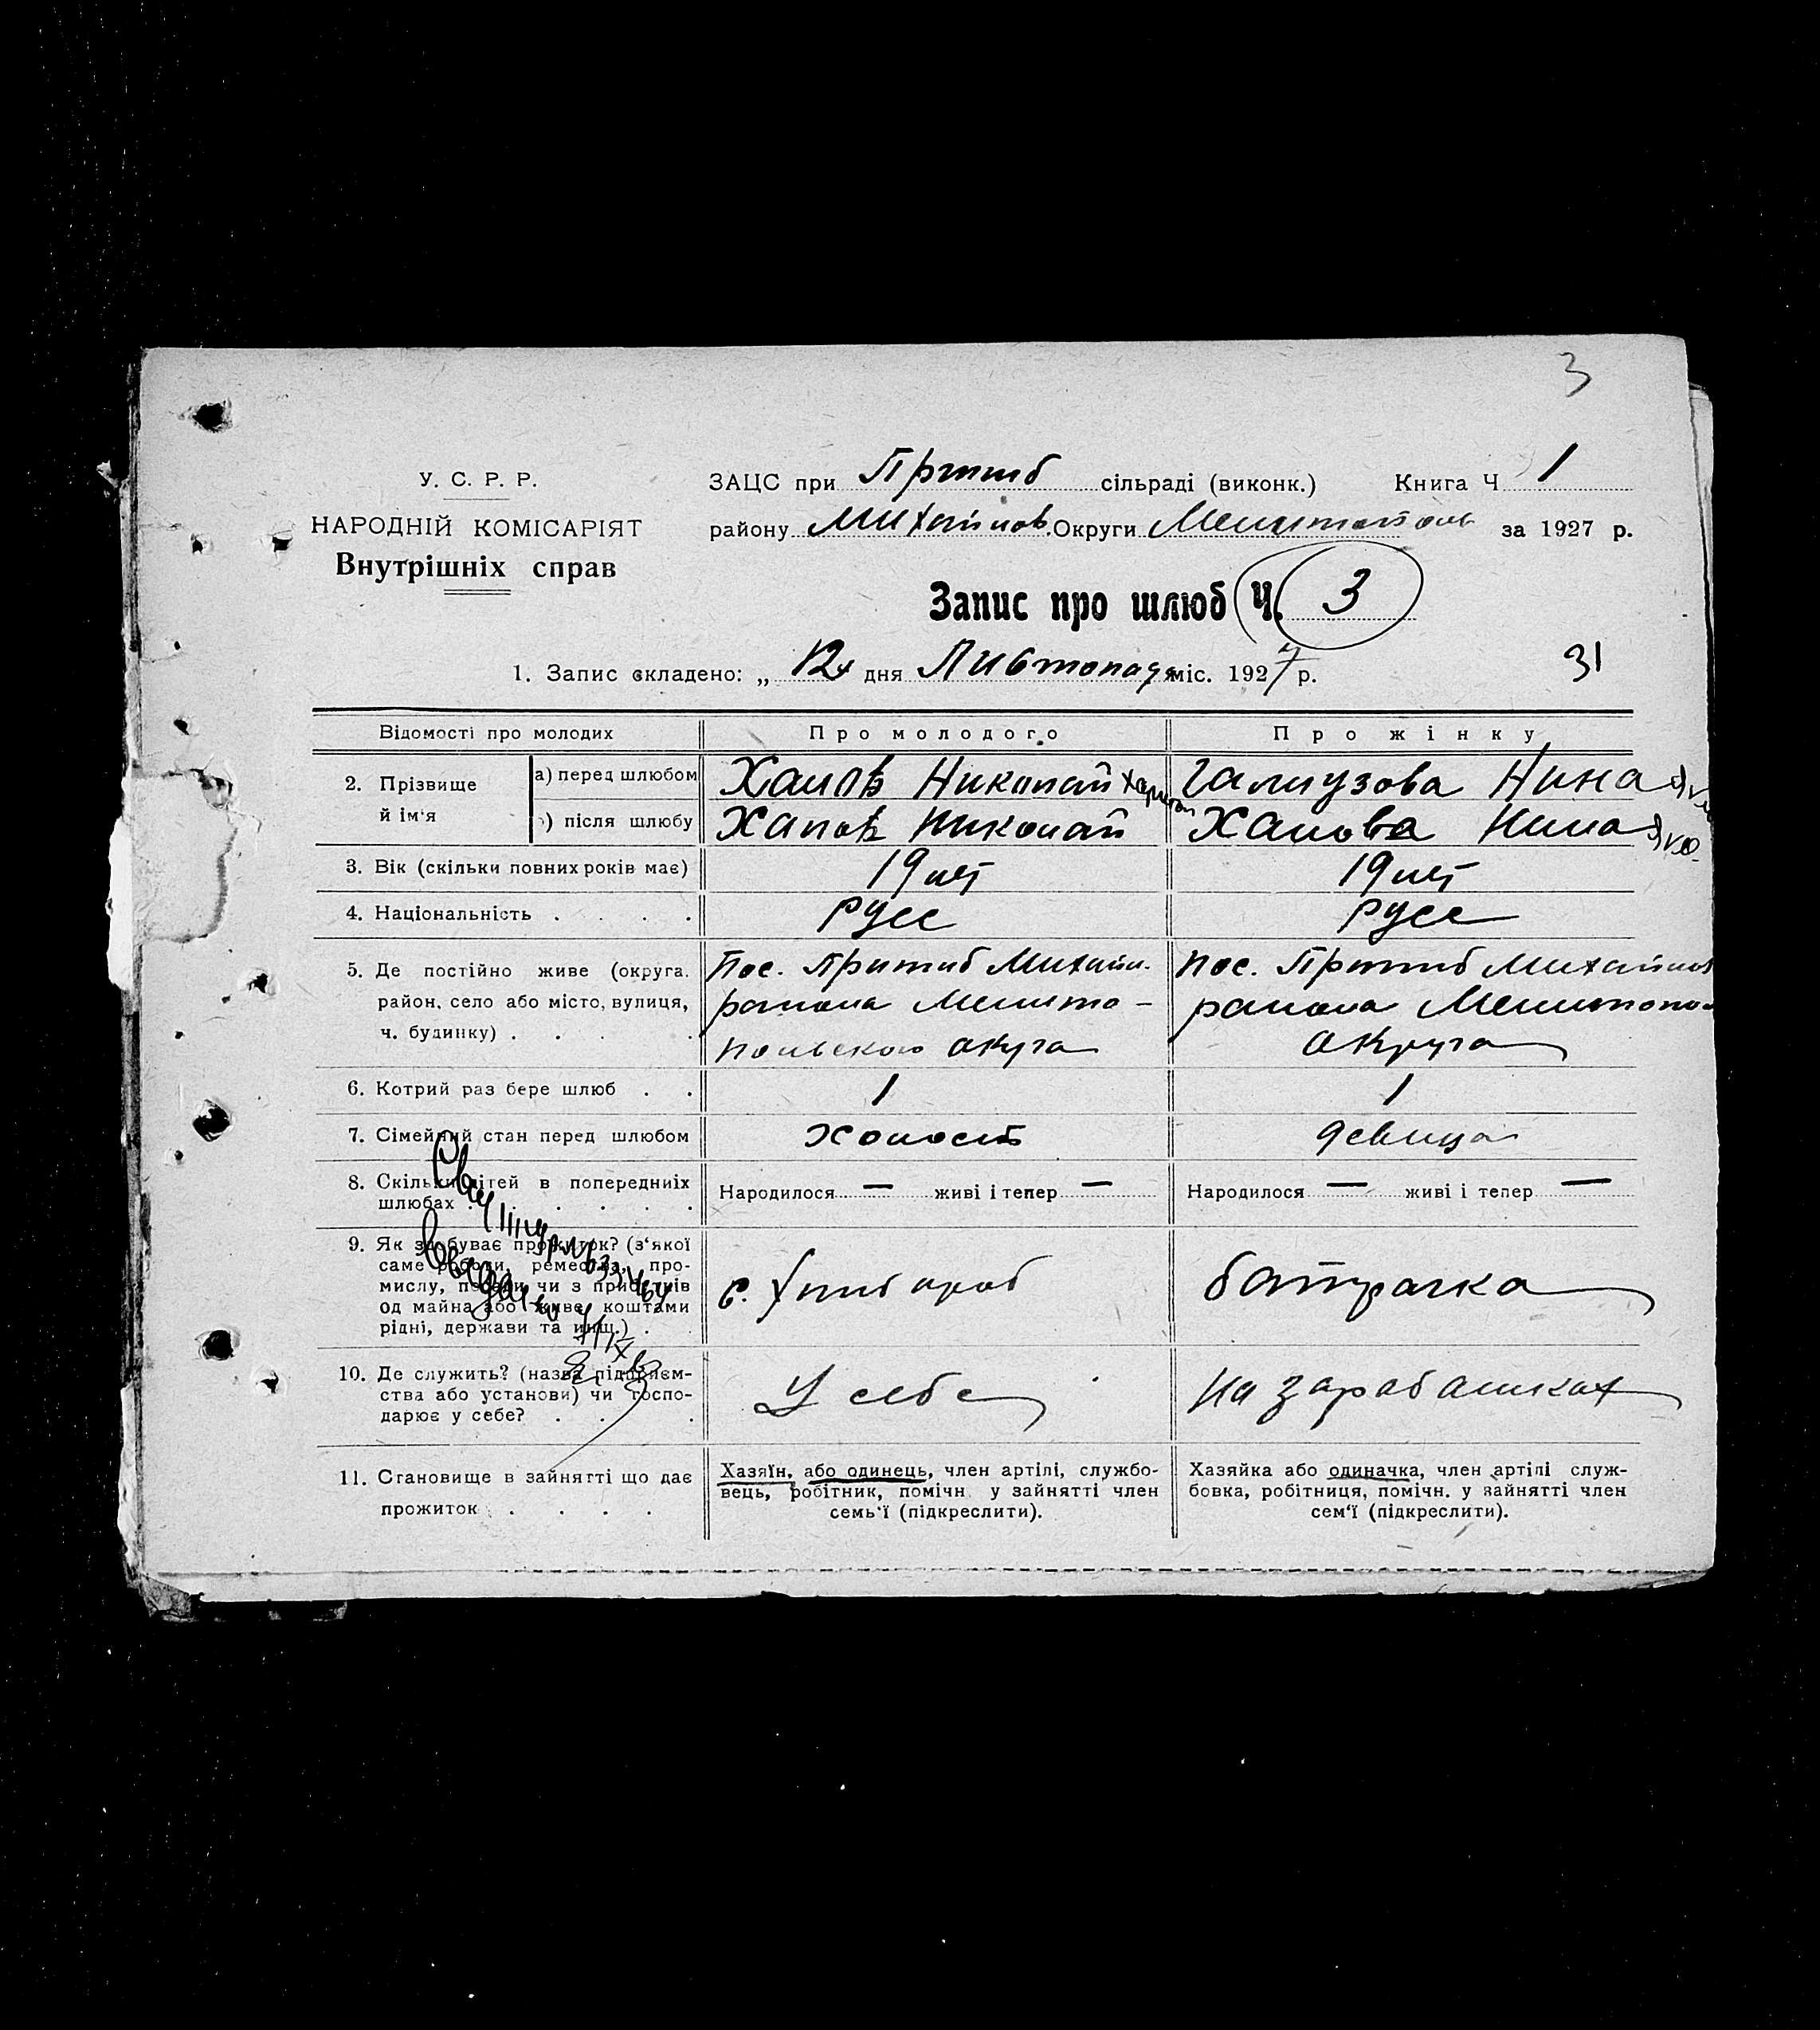 3
У. С. Р. Р.
НАРОДНІЙ КОМІСАРІЯТ
Внутрішніх справ
ЗАЦС при Пришиб сільраді (виконк.) Книга Ч 1
району Михайлов. Округи за 1927 р.
Запис про шлюб Ч. 3
1. Запис складено: „ 12 дня Листопада міс. 1927 р.
31
Відомості про молодих Про молодого Про жінку
2. Прізвище й ім'я
а) перед шлюбом Николай Нина
б) після шлюбу Николай Нина
3. Вік (скільки повних років має) 19 лет 19 лет
4. Національність . . . . Русс Русс
5. Де постійно живе (округа, Пос. Пришиб Михайл. Пос. Пришиб Михайлов
район, село або місто, вулиця, района Мелито- района Мелитопол
ч. будинку) . . . . польского округа округа
6. Котрий раз бере шлюб . . 1 1
7. Сімейний стан перед шлюбом холост девица
8. Скільки дітей в попередніх Народилося — живі і тепер — Народилося — живі і тепер —
шлюбах . . . . . .
9. Як здобуває прожиток? (з'якої
саме роботи, ремества, про-
мислу, посади чи з прибутків хлебороб батрачка
од майна або живе коштами
рідні, держави та инщ.) .
10. Де служить? (назва підприєм-
ства або установи) чи госпо- У себе На заработках
дарює у себе? . . .
11. Становище в зайнятті що дає Хазяїн, або одинець, член артілі, службо- Хазяйка або одиначка, член артілі служ-
вець, робітник, помічн. у зайнятті член бовка, робітниця, помічн. у зайнятті член
прожиток . . . . .
семь'ї (підкреслити). сем'ї (підкреслити).